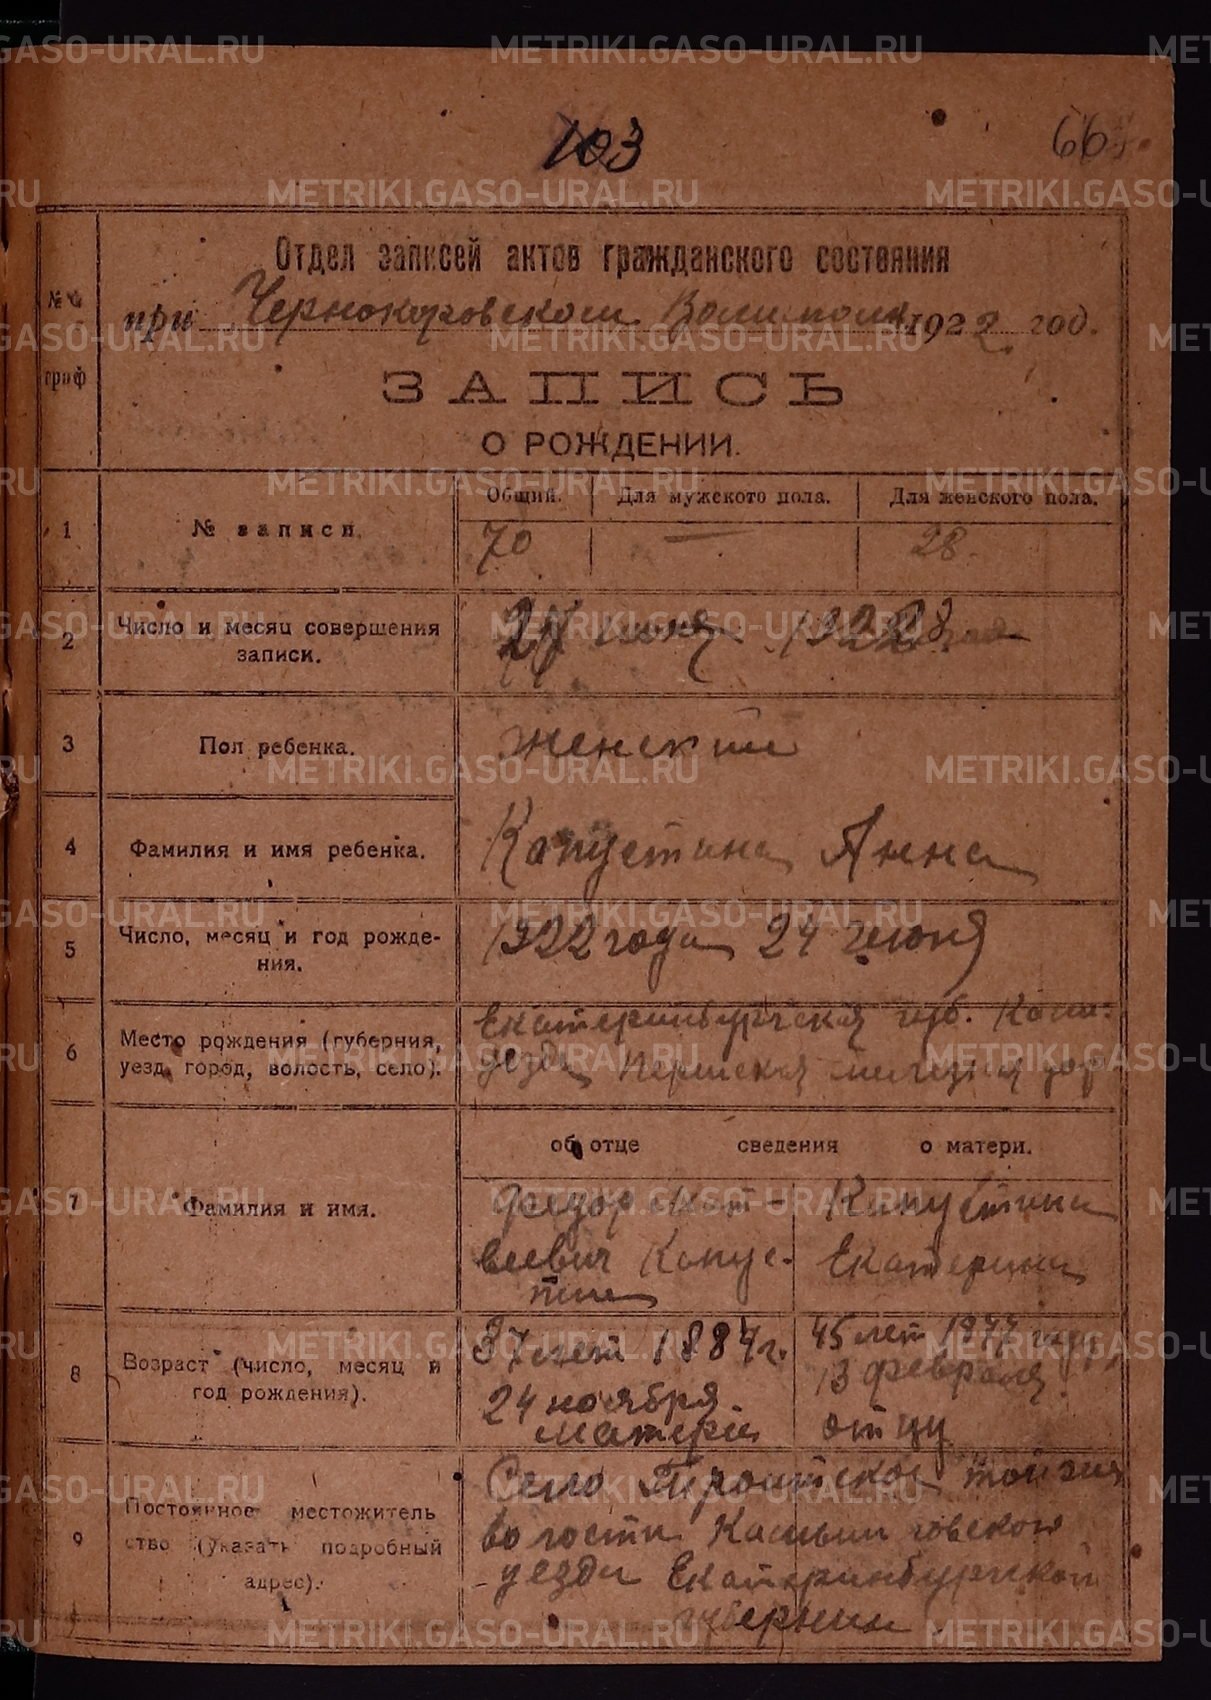 103
66
Отдел записей актов гражданского состояния
№№ граф
при Чернокоровском Волисполк 1922 год.
ЗАПИСЬ
О РОЖДЕНИИ.
Общий. Для мужского пола. Для женского пола.
1 № записи. 70 — 28.
2 Число и месяц совершения
записи.
июня 1922
3 Пол ребенка. женский
4 Фамилия и имя ребенка. Капустина Анна
5 Число, месяц и год рожде-
ния.
1922 года 24 июня
6 Место рождения (губерния,
уезд, город, волость, село).
Екатеринбургская губ. Кам.
уезда Пермская железная дор
об отце сведения о матери.
7 Фамилия и имя.
Федор Мат-
веевич Капус-
тин
Капустина
Екатерина
8 Возраст (число, месяц и
год рождения).
37 лет 1884 г.
24 ноября
матери
45 лет 1877 году
13 февраля
отцу
9 Постоянное местожитель
ство (указать подробный
адрес).
Село Троитское тойже
волости Камышловского
уезда Екатеринбургской
губернии
METRIKI.GASO-URAL.RU